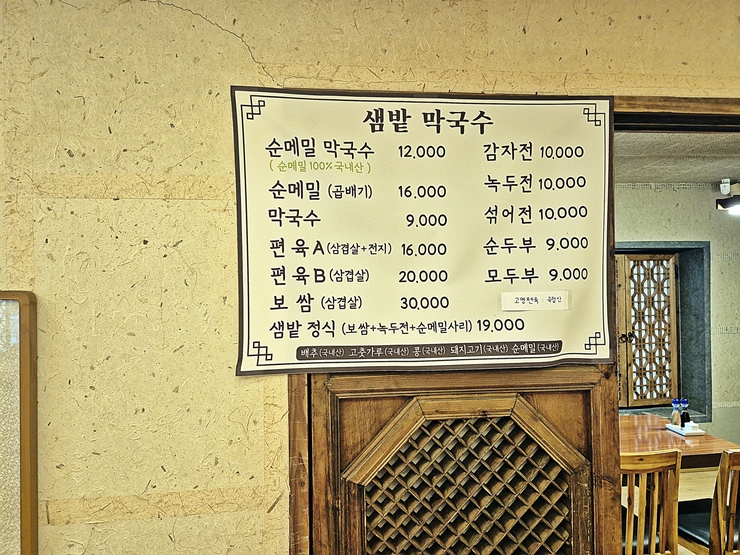 샘밭 막국수
순메밀 막국수 12,000
( 순메밀 100% 국내산 )
순메밀 (곱배기) 16,000
막국수 9,000
편 육 A (삼겹살+전지) 16,000
편 육 B (삼겹살) 20,000
보 쌈 (삼겹살) 30,000
샘밭 정식 (보쌈+녹두전+순메밀사리) 19,000
감자전 10,000
녹두전 10,000
섞어전 10,000
순두부 9,000
모두부 9,000
배추(국내산) 고춧가루(국내산) 콩(국내산) 돼지고기(국내산) 순메밀(국내산)